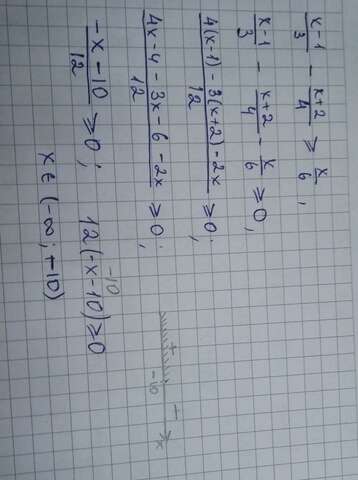 (x-1)/3 - (x+2)/4 ≥ x/6,
(x-1)/3 - (x+2)/4 - x/6 ≥ 0,
(4(x-1) - 3(x+2) - 2x)/12 ≥ 0;
(4x-4-3x-6-2x)/12 ≥ 0;
(-x-10)/12 ≥ 0; 12(-x-10) ≥ 0
-10
x ∈ (-∞; -10)
+ -
-10 x